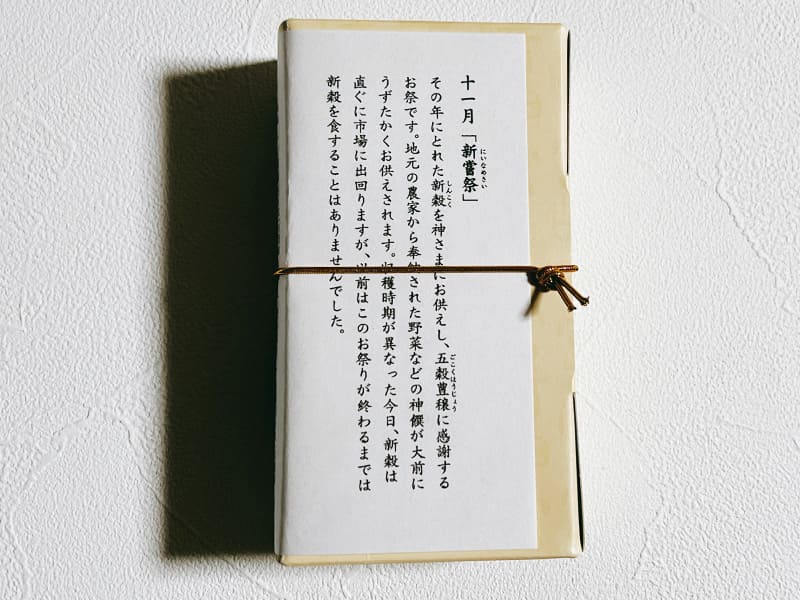 十一月「新嘗祭」
にいなめさい
その年にとれた新穀を神さまにお供えし、五穀豊穣に感謝する
しんこく
ごこくほうじょう
お祭です。地元の農家から奉納された野菜などの神饌が大前に
うずたかくお供えされます。収穫時期が異なった今日、新穀は
直ぐに市場に出回りますが、以前はこのお祭りが終わるまでは
新穀を食することはありませんでした。